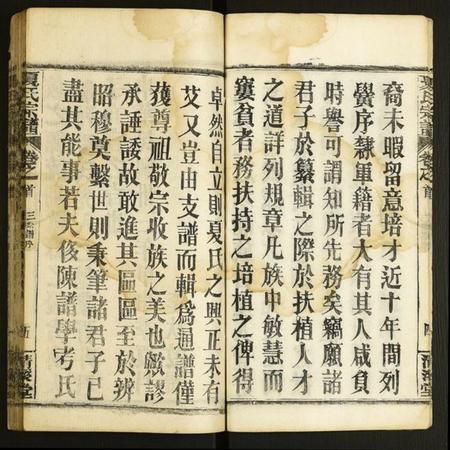 裔未暇留意培才近十年間列
黌序隸軍籍者大有其人咸負
時譽可謂知所先務矣竊願諸
君子於纂輯之際於扶植人才
之道詳列規章凡族中敏慧而
窶貧者務扶持之培植之俾得
卓然自立則夏氏之興正未有
艾又豈由支譜而輯爲通譜僅
獲尊祖敬宗收族之美也歟謬
承諈諉故敢進其區區至於辨
昭穆奠繫世則秉筆諸君子已
盡其能事若夫侈陳譜學考氏
夏氏宗譜
卷之首
夏氏宗譜
卷之首